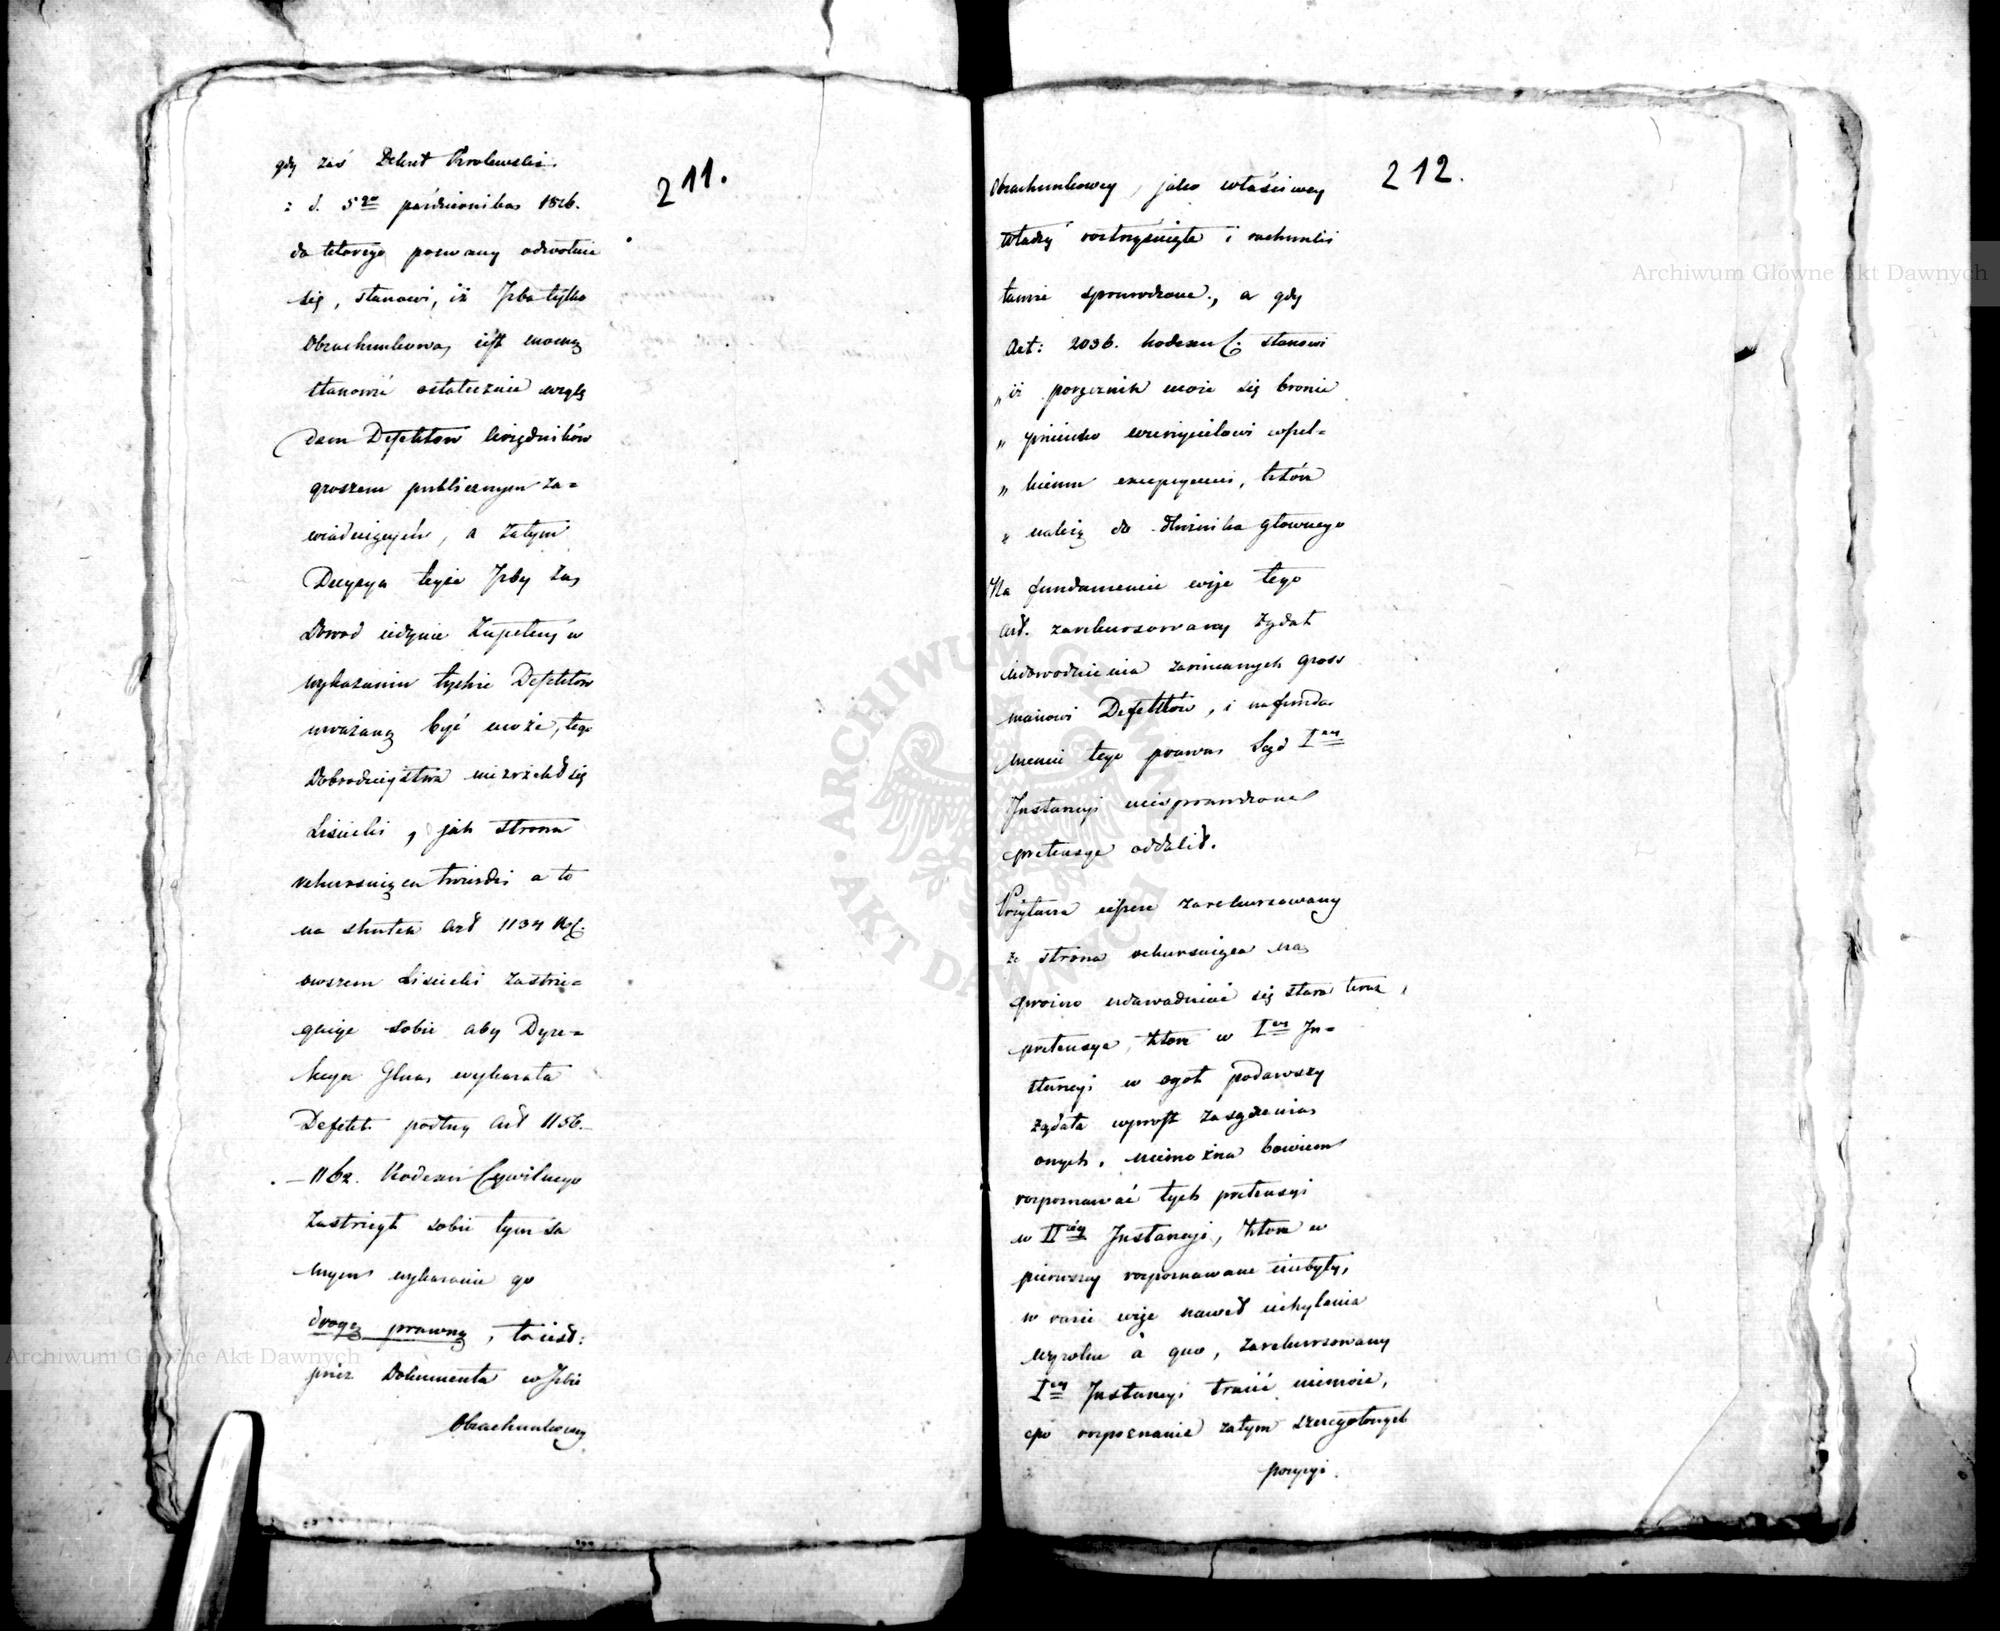 211.
gdy zaś Dekret Krolewski.
z d. 5go października 1816.
do ktorego pozwany odwołuie
się, stanowi, iż Jzba tylko
Obrachunkowa iest mocną
stanowić ostatecznie wzglę
dem Defektow Urzędników
groszem publicznym za=
wiaduiących, a zatym
Decyzya teyże Jzby za
Dowod iedynie Zupełny w
wykazaniu tychże Defektow
uważaną być może, tego
Dobrodzieystwa niezrzekł się
Lisiecki, jak strona
rekursuiąca twierdzi a to
na skutek Art 1134 KC.
owszem Lisiecki zastrze=
gaiąc sobie aby Dyre=
kcya Glna wykazała
Defekt. podług Art 1156.
— 1162. Kodexu Cywilnego
Zastrzegł sobie tym sa
mym wykazanie go
drogą prawną, to iest:
przez Dokumenta w Jzbie
Obrachunkowey
212.
Obrachunkowey, jako właściwey
Władzy roztrząśnięte i rachunki
tamże sprawdzone, a gdy
Art: 2036. Kodexu C. stanowi
„iż poręcznik może się bronić
„przeciwko wierzycielowi wszel=
„kiemi excepcyami, które
„należą do dłużnika głownego
Na fundamencie więc tego
Art. zarekursowany żądał
udowodnienia zarzucanych Gross
manowi Defektów, i na funda
mencie tego prawa Sąd Iey
Jnstancyi niesprawdzone
pretensye oddalił.
Przytacza ieszcze zarekursowany
że strona rekursuiąca na
prożno udowadniać się stara teraz,
pretensye, które w Iey Jn=
stancyi w ogół podawszy
żądała wprost zasądzenia
onych, niemożna bowiem
rozpoznawać tych pretensyi
w IIiey Jnstancyi, które w
pierwszey rozpoznawane niebyły,
w razie więc nawet uchylenia
wyroku à quo, zarekursowany
Iey Jnstancyi tracić niemoże,
po rozpoznanie zatym szczegolnych
pozycyi.
Archiwum Główne Akt Dawnych
Archiwum Główne Akt Dawnych
ARCHIWUM GŁÓWNE AKT DAWNYCH